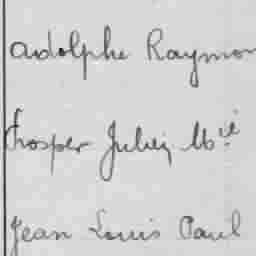 Adolphe Raymon
Prosper Julien M.ie
Jean Louis Paul